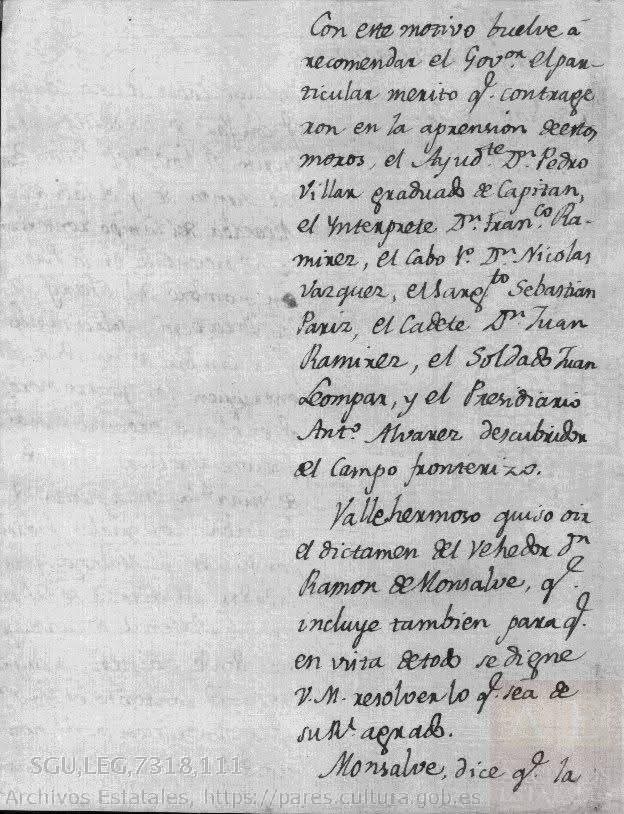 Con este motivo buelve á
recomendar el Gov.or el par-
ticular merito q.e contrage
ron en la aprension de estos
moros, el Ayud.te D.n Pedro
Villar graduado de Capitan,
el Ynterprete D.n Fran.co Ra-
mirez, el Cabo 1.o D.n Nicolas
Vazquez, el Sarg.to Sebastian
Pariz, el Cadete D.n Juan
Ramirez, el Soldado Juan
Lompar, y el Presidiario
Ant.o Alvarez descubridor
del Campo fronterizo.
Vallehermoso quiso oir
el dictamen del Vehedor d.n
Ramon de Monsalve, q.e
incluye tambien para q.e
en vista de todo se digne
V.M. resolver lo q.e sea de
su R.l agrado.
Monsalve, dice q.e la
SGU,LEG,7318,111
Archivos Estatales, https://pares.cultura.gob.es